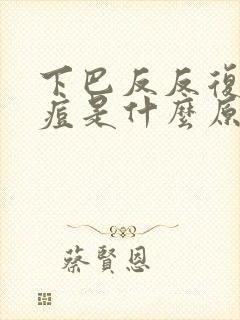 下巴反反復
痘是什麼原
蔡賢恩